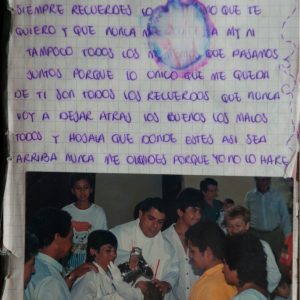 SIEMPRE RECUERDES LO NO QUE TE
QUIERO Y QUE NUNCA A MY NI
TAMPOCO TODOS LOS QUE PASAMOS
JUNTOS PORQUE LO UNICO QUE ME QUEDA
DE TI SON TODOS LOS RECUERDOS QUE NUNCA
VOY A DEJAR ATRAS LOS BUENOS LOS MALOS
TODOS Y HOJALA QUE DONDE ESTES ASI SEA
ARRIBA NUNCA ME OLVIDES PORQUE YO NO LO HARE